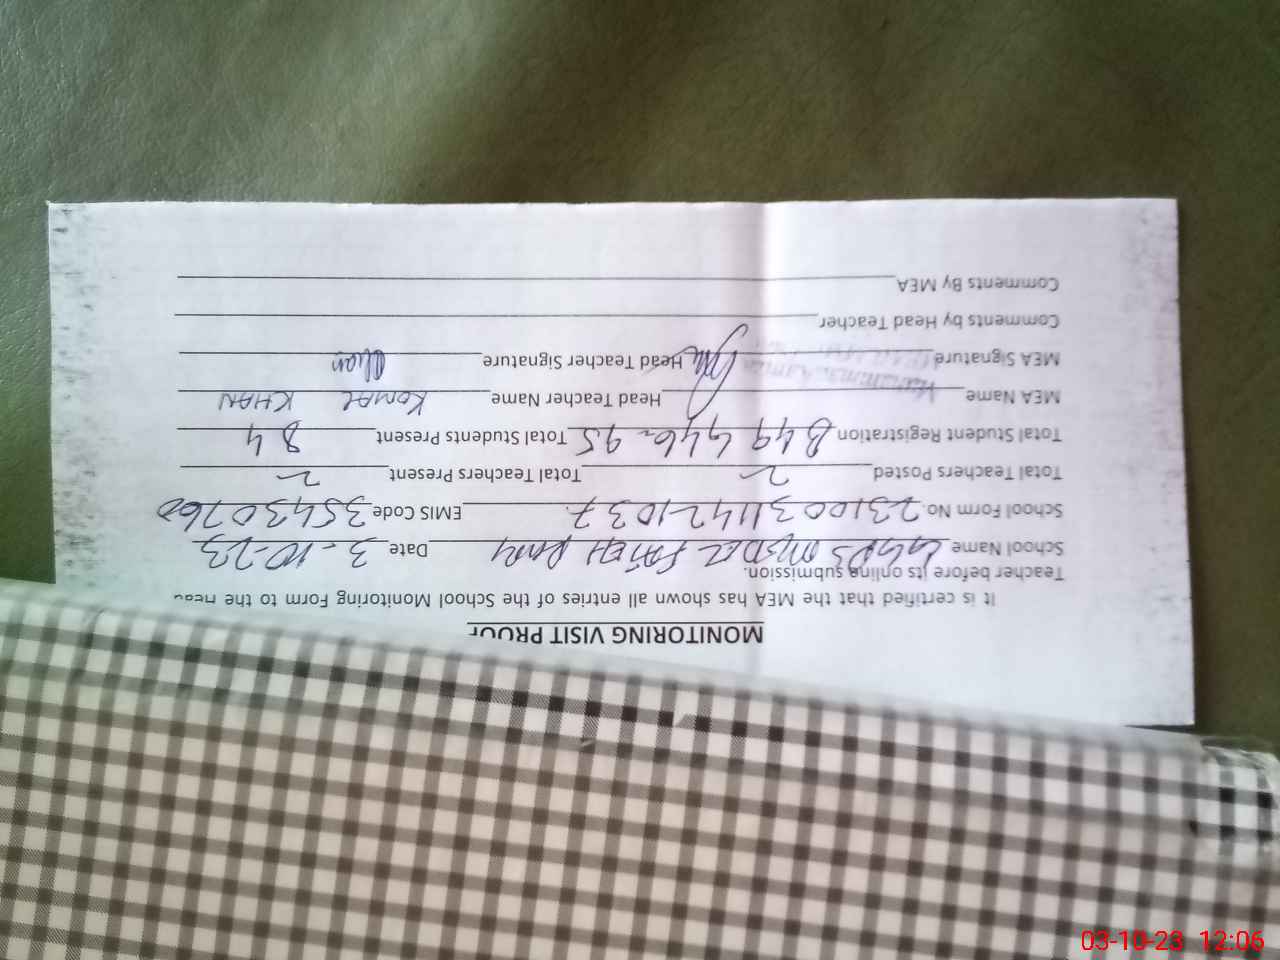 MONITORING VISIT PROOF
It is certified that the MEA has shown all entries of the School Monitoring Form to the Head
Teacher before its online submission.
School Name GGPS MODEL FATEH Date 3-10-23
School Form No. 23100311421037. EMIS Code 35430760
Total Teachers Posted 2 Total Teachers Present 2
Total Student Registration B49 G46=95 Total Students Present 84
MEA Name Head Teacher Name KOMAL KHAN
MEA Signature Head Teacher Signature
Comments by Head Teacher
Comments By MEA
03-10-23 12:06